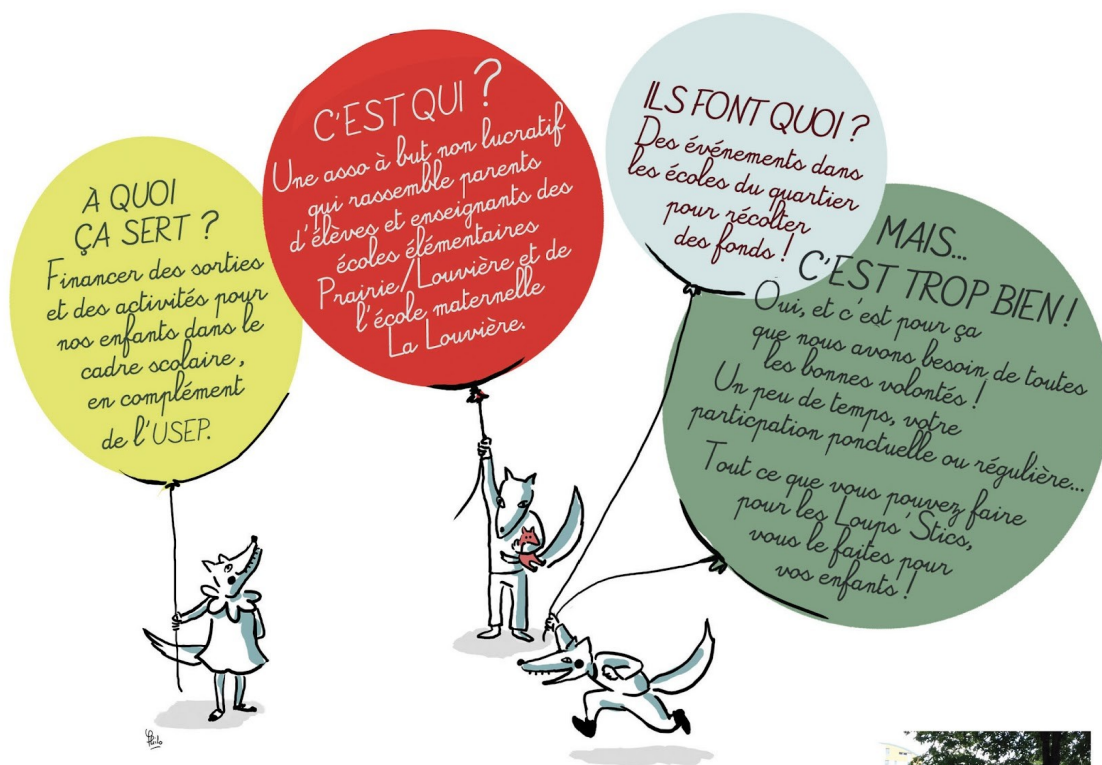 À QUOI
ÇA SERT ?
Financer des sorties
et des activités pour
nos enfants dans le
cadre scolaire,
en complément
de l'USEP.
C'EST QUI ?
Une asso à but non lucratif
qui rassemble parents
d'élèves et enseignants des
écoles élémentaires
Prairie/Louvière et de
l'école maternelle
La Louvière.
ILS FONT QUOI ?
Des événements dans
les écoles du quartier
pour récolter
des fonds !
MAIS...
C'EST TROP BIEN !
Oui, et c'est pour ça
que nous avons besoin de toutes
les bonnes volontés !
Un peu de temps, votre
particpation ponctuelle ou régulière...
Tout ce que vous pouvez faire
pour les Loups'Stics,
vous le faites pour
vos enfants !
Philo